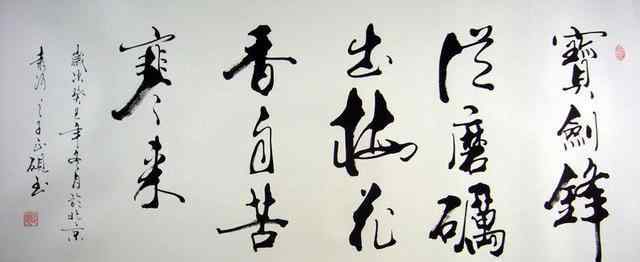 寶劍鋒
從磨礪
出梅花
香自苦
寒来
歲次癸巳年冬月於北京